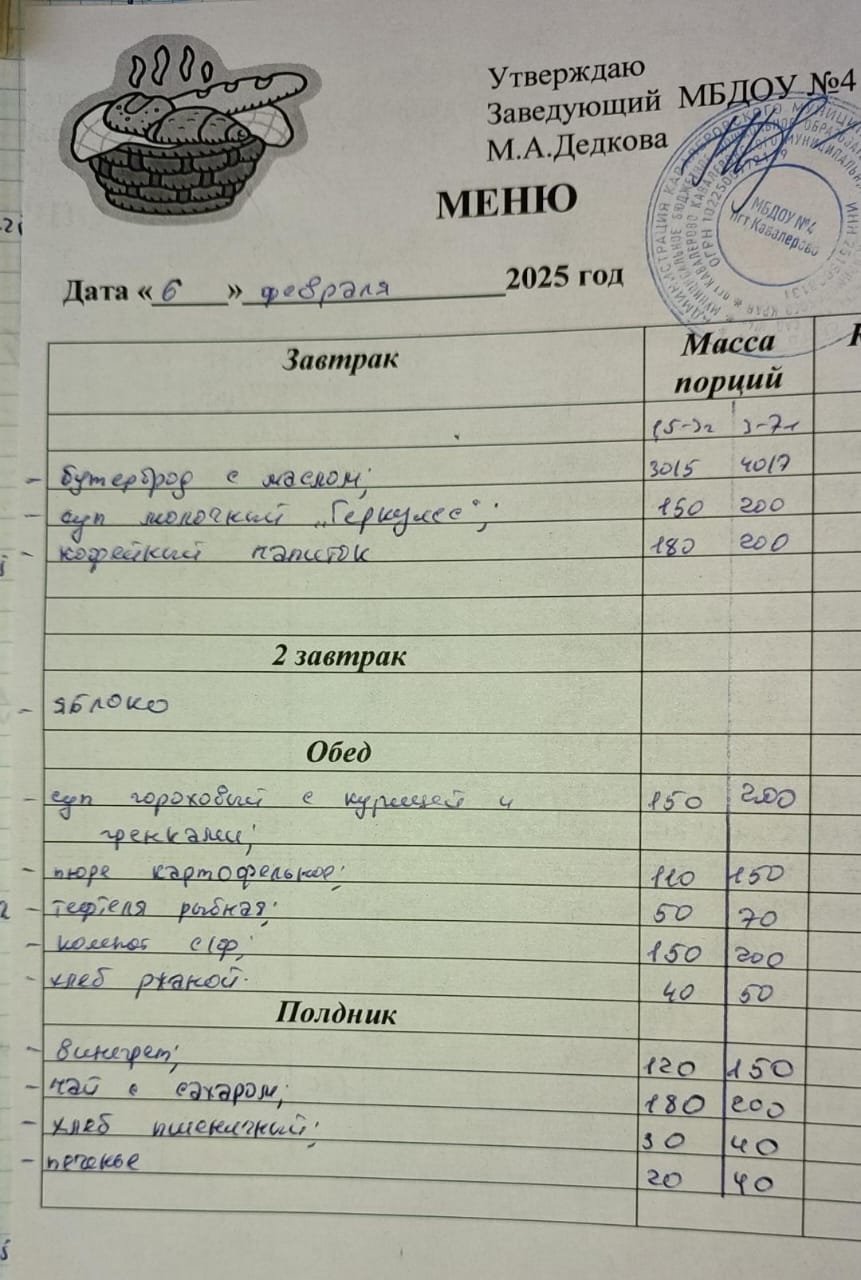 Утверждаю
Заведующий МБДОУ №4
М.А.Дедкова
МБДОУ №4
пгт Кавалерово
МЕНЮ
Дата «6» февраля 2025 год
Завтрак Масса порций
1,5-3г 3-7л
- бутерброд с маслом; 30/5 40/7
- суп молочный „Геркулес"; 150 200
- кофейный напиток 180 200
2 завтрак
- яблоко
Обед
- суп гороховый с курицей и 150 200
гренками;
- пюре картофельное; 110 150
- тефтеля рыбная; 50 70
- компот с/ф; 150 200
- хлеб ржаной. 40 50
Полдник
- винегрет; 120 150
- чай с сахаром; 180 200
- хлеб пшеничный; 30 40
- печенье 20 40